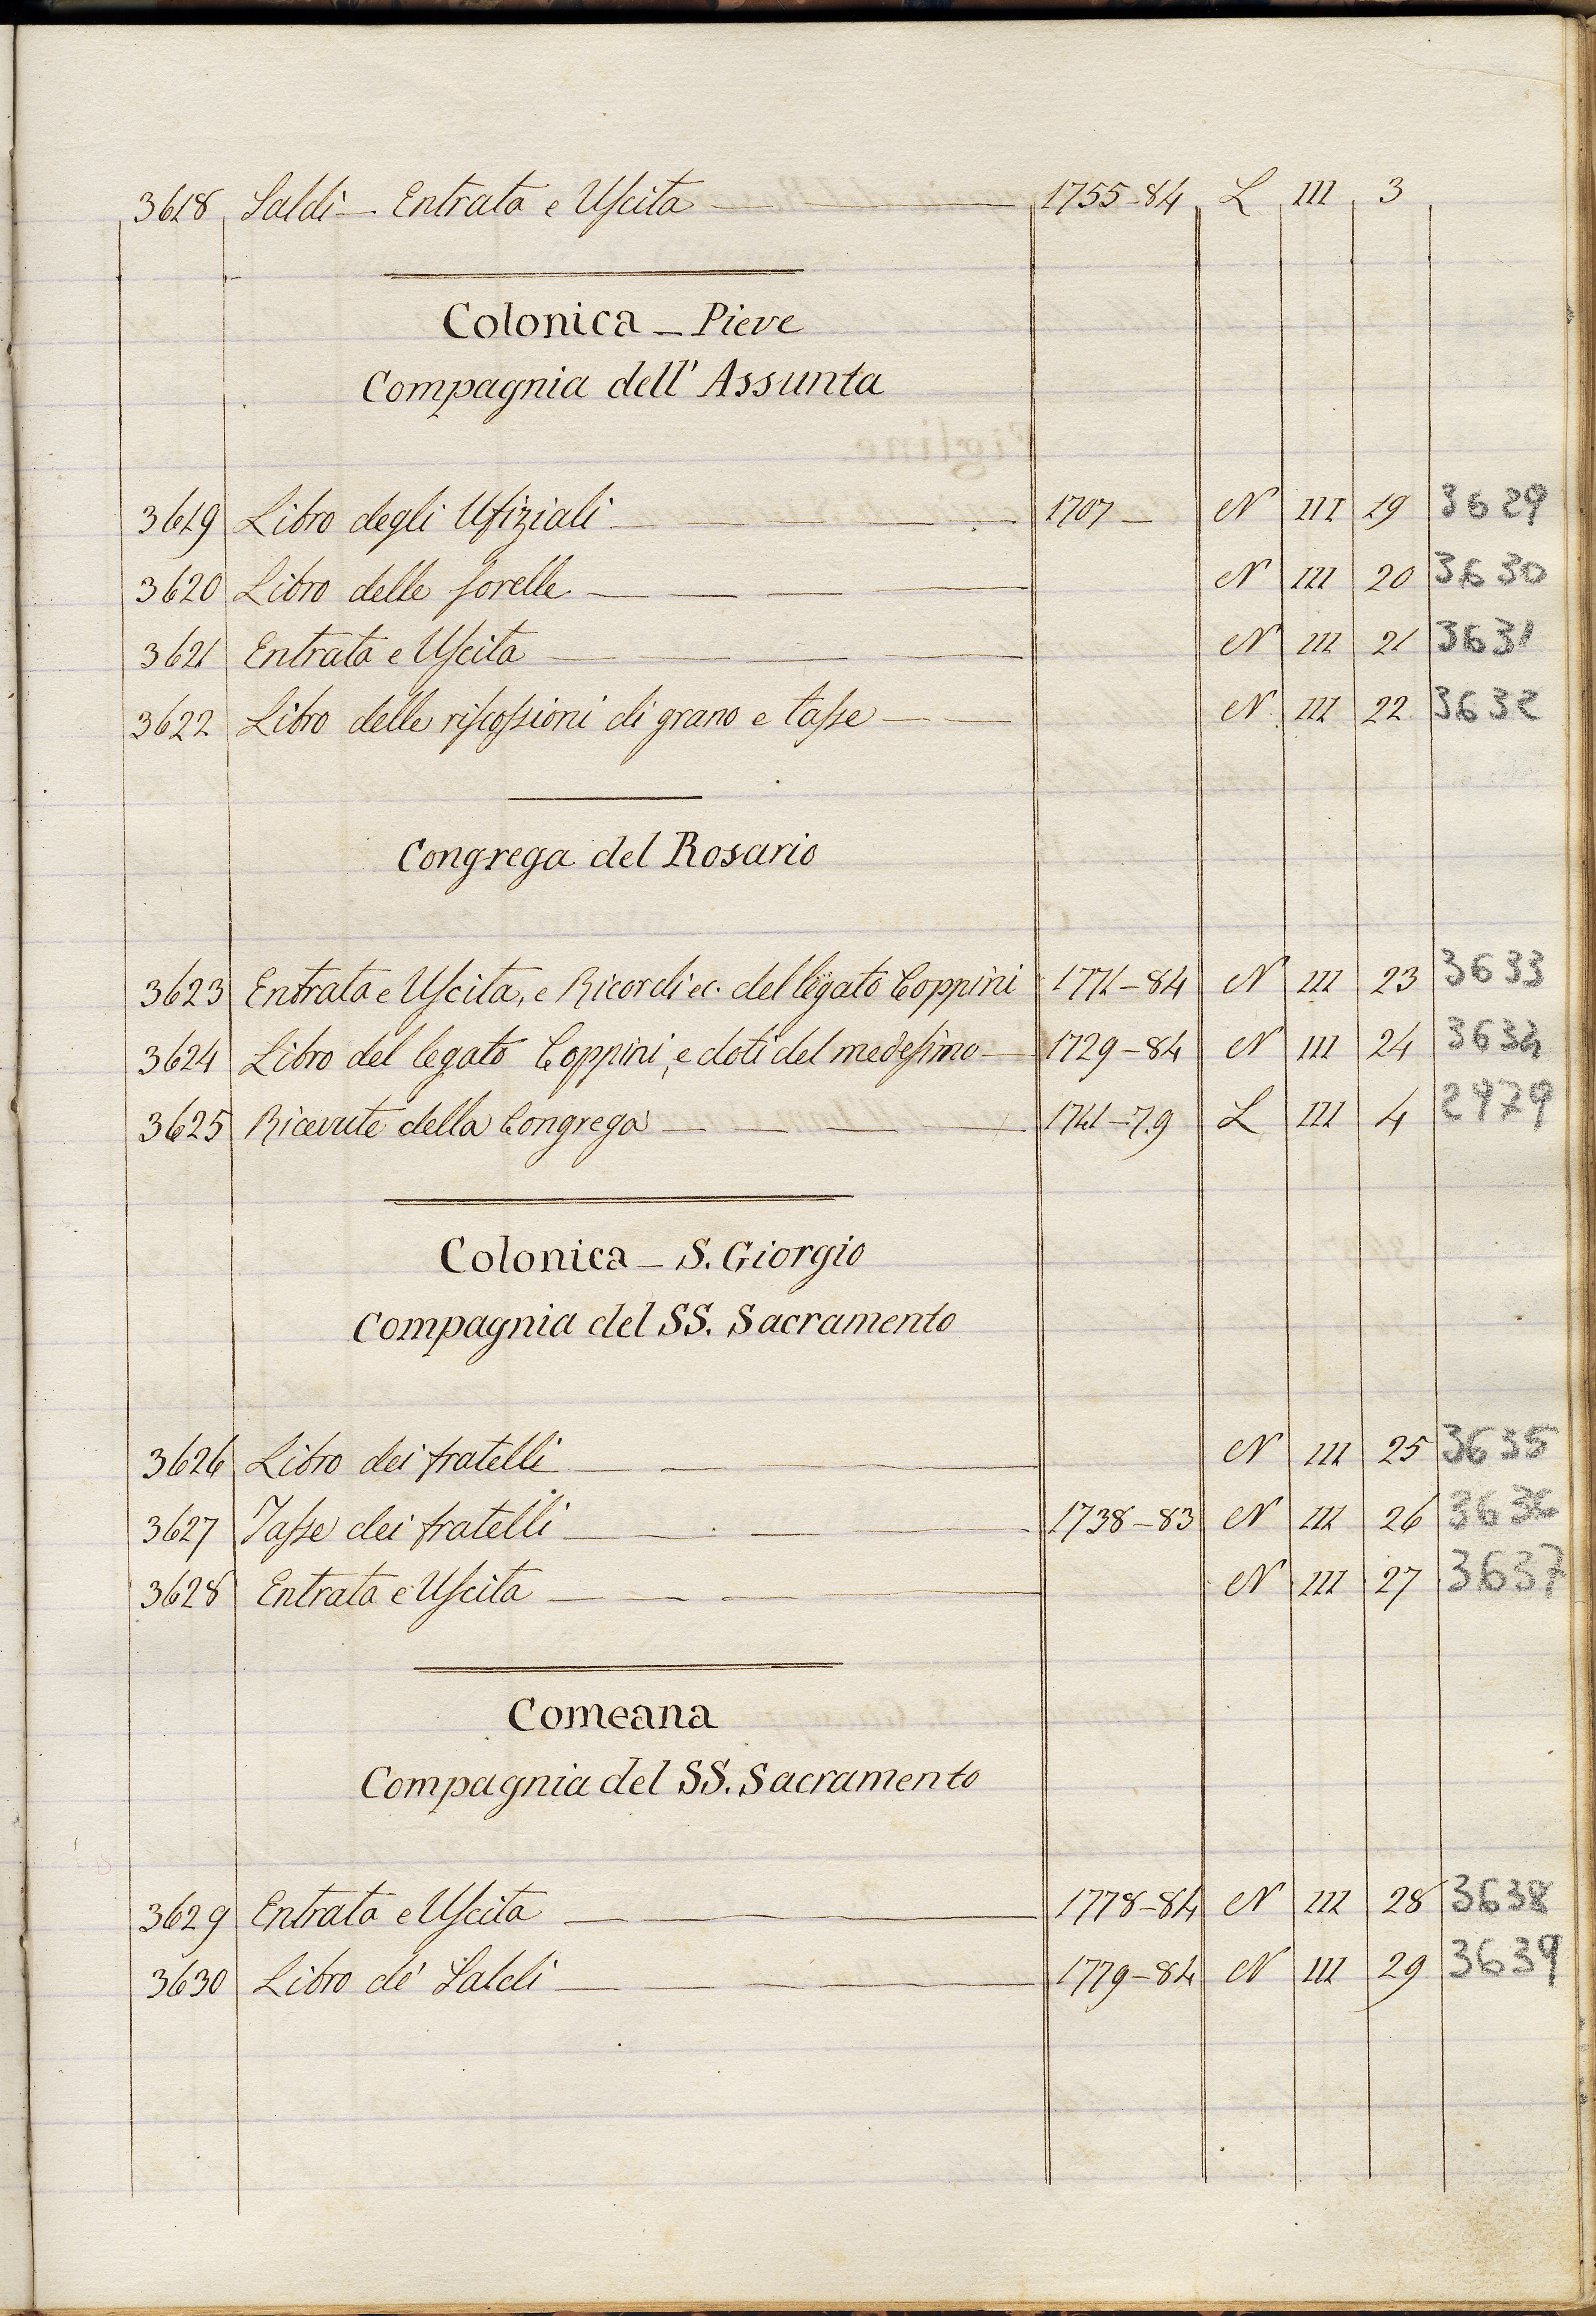 3618 Saldi — Entrata e Uscita — 1755-84 L III 3
Colonica — Pieve
Compagnia dell' Assunta
3619 Libro degli Ufiziali — 1707 — N III 19 3629
3620 Libro delle sorelle — N III 20 3630
3621 Entrata e Uscita — N III 21 3631
3622 Libro delle riscossioni di grano e tasse — N III 22 3632
Congrega del Rosario
3623 Entrata e Uscita, e Ricordi ec. del legato Coppini 1771-84 N III 23 3633
3624 Libro del legato Coppini, e doti del medesimo — 1729-84 N III 24 3634
3625 Ricevute della Congrega — 1741-79 L III 4 2479
Colonica — S. Giorgio
Compagnia del SS. Sacramento
3626 Libro dei fratelli — N III 25 3635
3627 Tasse dei fratelli — 1738-83 N III 26 3636
3628 Entrata e Uscita — N III 27 3637
Comeana
Compagnia del SS. Sacramento
3629 Entrata e Uscita — 1778-84 N III 28 3638
3630 Libro de' Saldi — 1779-84 N III 29 3639